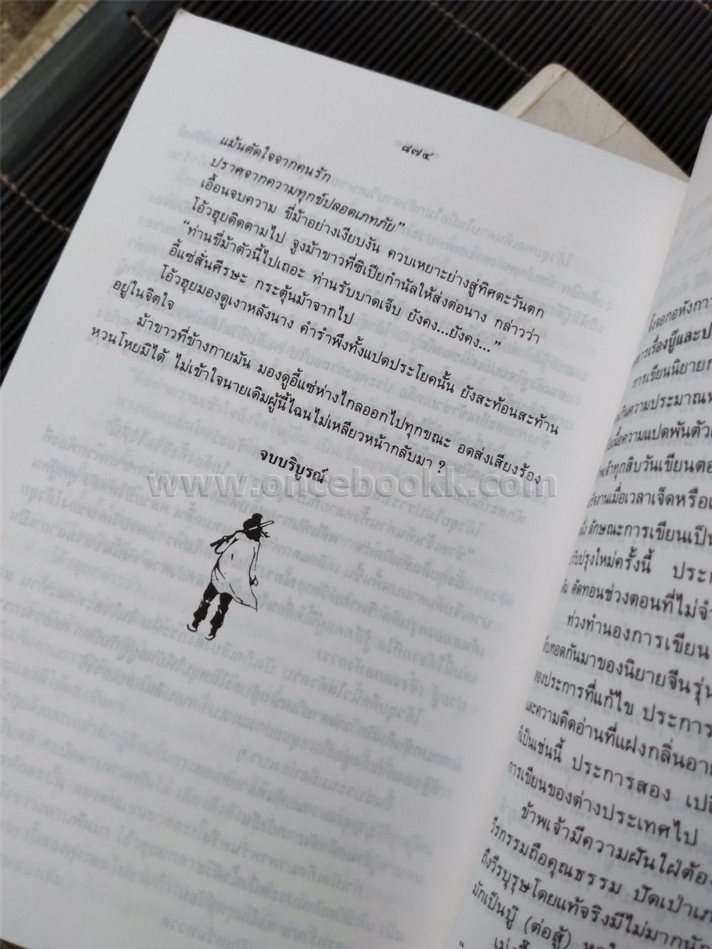 ๘๗๔
แม้นตัดใจจากคนรัก
ปราศจากความทุกข์ปลอดเภทภัย”
เอื้อนจบความ ขี่ม้าอย่างเงียบงัน ควบเหยาะย่างสู่ทิศตะวันตก
โอ้วฮุยติดตามไป จูงม้าขาวที่ซิเปียกำนัลให้ส่งต่อนาง กล่าวว่า
“ท่านขี่ม้าตัวนี้ไปเถอะ ท่านรับบาดเจ็บ ยังคง...ยังคง...”
อี้แซ่สั่นศีรษะ กระตุ้นม้าจากไป
โอ้วฮุยมองดูเงาหลังนาง คำรำพึงทั้งแปดประโยคนั้น ยังสะท้อนสะท้าน
อยู่ในจิตใจ
ม้าขาวที่ข้างกายมัน มองดูอี้แซ่ห่างไกลออกไปทุกขณะ อดส่งเสียงร้อง
หวนโหยมิได้ ไม่เข้าใจนายเดิมผู้นี้ไฉนไม่เหลียวหน้ากลับมา ?
จบบริบูรณ์
www.oncebookk.com
การเขียนนิยาย
ลักษณะการเขียนเป็น
ปรับปรุงใหม่ครั้งนี้
ตัดทอนช่วงตอนที่ไม่
ท่วงทำนองการเขียน
ทอดกันมาของนิยายจีนรุ่น
ประการที่แก้ไข ประการ
และความคิดอ่านที่แฝงกลิ่นอาย
ก็เป็นเช่นนี้ ประการสอง
การเขียนของต่างประเทศไป
ข้าพเจ้ามีความฝันใฝ่ต้อง
วีรกรรมถือคุณธรรม ปัดเป่า
ถึงวีรบุรุษโดยแท้จริงมีไม่มากนัก
มักเป็นบู๊ (ต่อสู้)